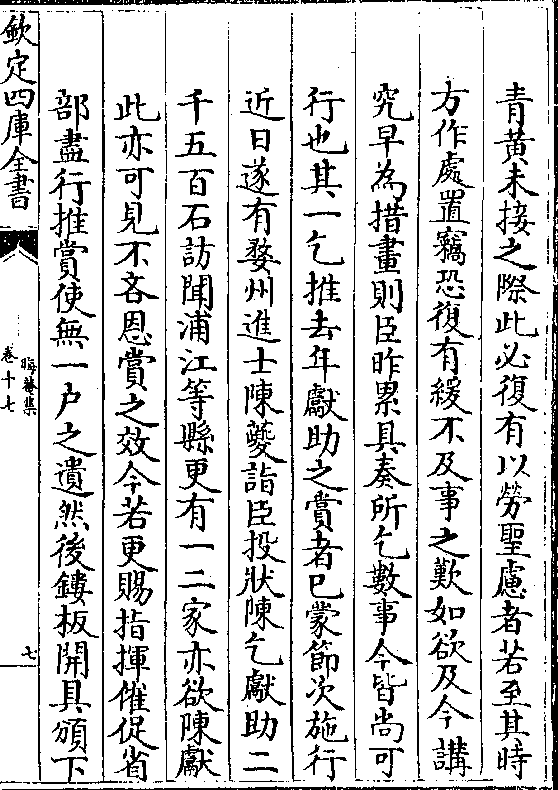 青黃未接之際此必復有以勞聖慮者若至其時
方作處置竊恐復有緩不及事之歎如欲及今講
究早為措畫則臣昨累具奏所乞數事今皆尚可
行也其一乞推去年獻助之賞者已蒙節次施行
近日遂有婺州進士陳夔詣臣投狀陳乞獻助二
千五百石訪聞浦江等縣更有一二家亦欲陳獻
此亦可見不吝恩賞之效今若更賜指揮催促省
部盡行推賞使無一户之遺然後鏤板開具頒下
欽定四庫全書
晦菴集
卷十七
七